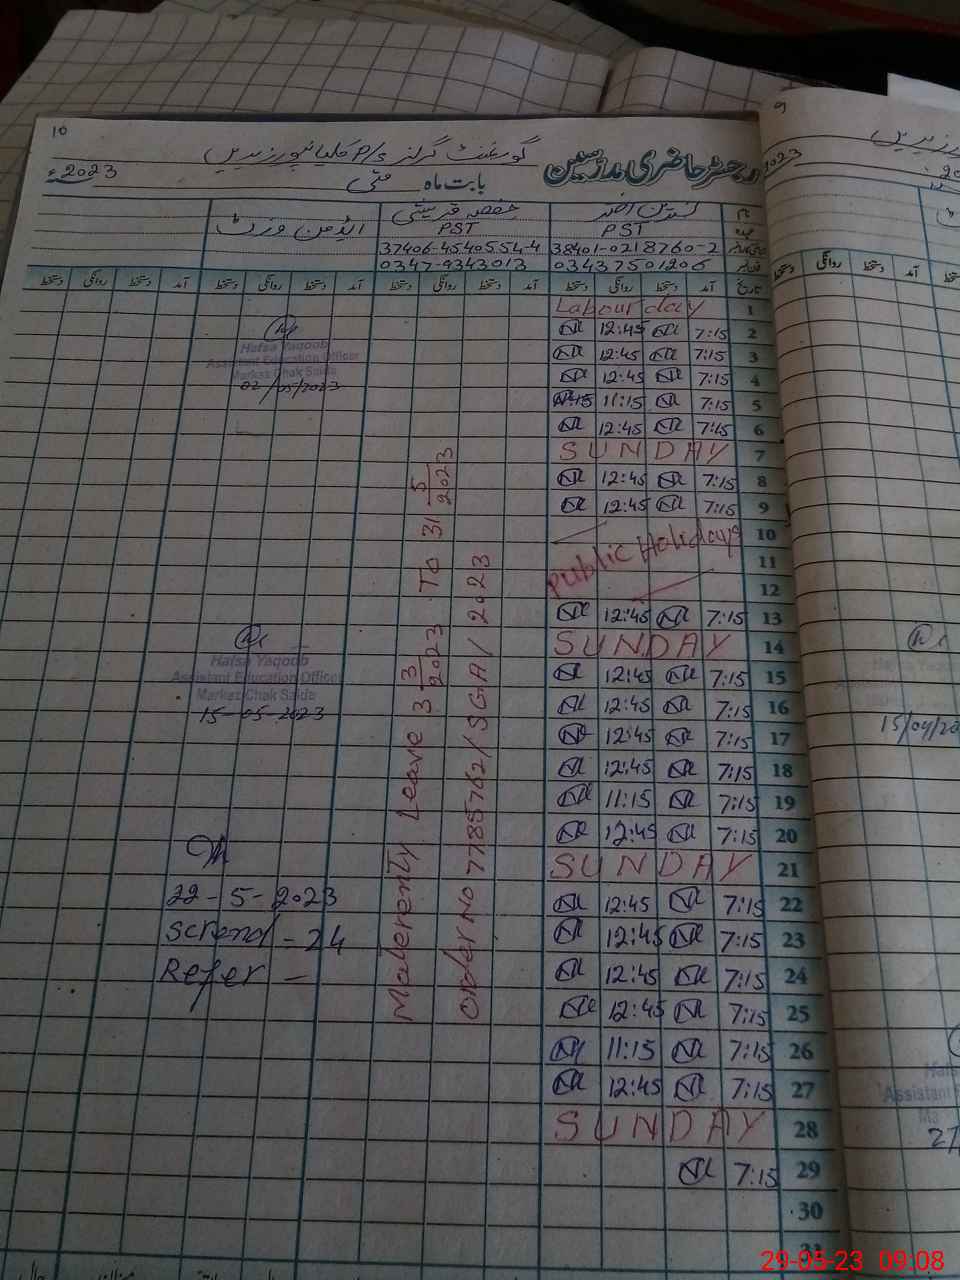 10
گورنمنٹ گرلز P/S
رجسٹر حاضری مدرسین
بابت ماہ مئی 2023ء
نام
عہدہ
PST
PST
38401-0218760-2
37406-4540554-4
03437501206
0347-9343013
ایڈمن وزٹ
تاریخ آمد دستخط روانگی دستخط آمد دستخط روانگی دستخط آمد دستخط روانگی دستخط آمد دستخط روانگی دستخط
1 Labour day
2 7:15 12:45
3 7:15 12:45
4 7:15 12:45
5 7:15 11:15
6 7:15 12:45
7 SUNDAY
8 7:15 12:45
9 7:15 12:45
10
11 Public Holidays
12
13 7:15 12:45
14 SUNDAY
15 7:15 12:45
16 7:15 12:45
17 7:15 12:45
18 7:15 12:45
19 7:15 11:15
20 7:15 12:45
21 SUNDAY
22 7:15 12:45
23 7:15 12:45
24 7:15 12:45
25 7:15 12:45
26 7:15 11:15
27 7:15 12:45
28 SUNDAY
29 7:15
30
31
Materenty Leave 3 3/2023 To 31 5/2023
Order No 7785762/SGA/2023
Hafsa Yaqoob
Assistant Education Officer
Markaz Chak Saida
02/05/2023
Hafsa Yaqoob
Assistant Education Officer
Markaz Chak Saida
15-05-2023
22-5-2023
Scrend - 24
Refer -
9
2023
15/04/20
Assistant
27/
29-05-23 09:08